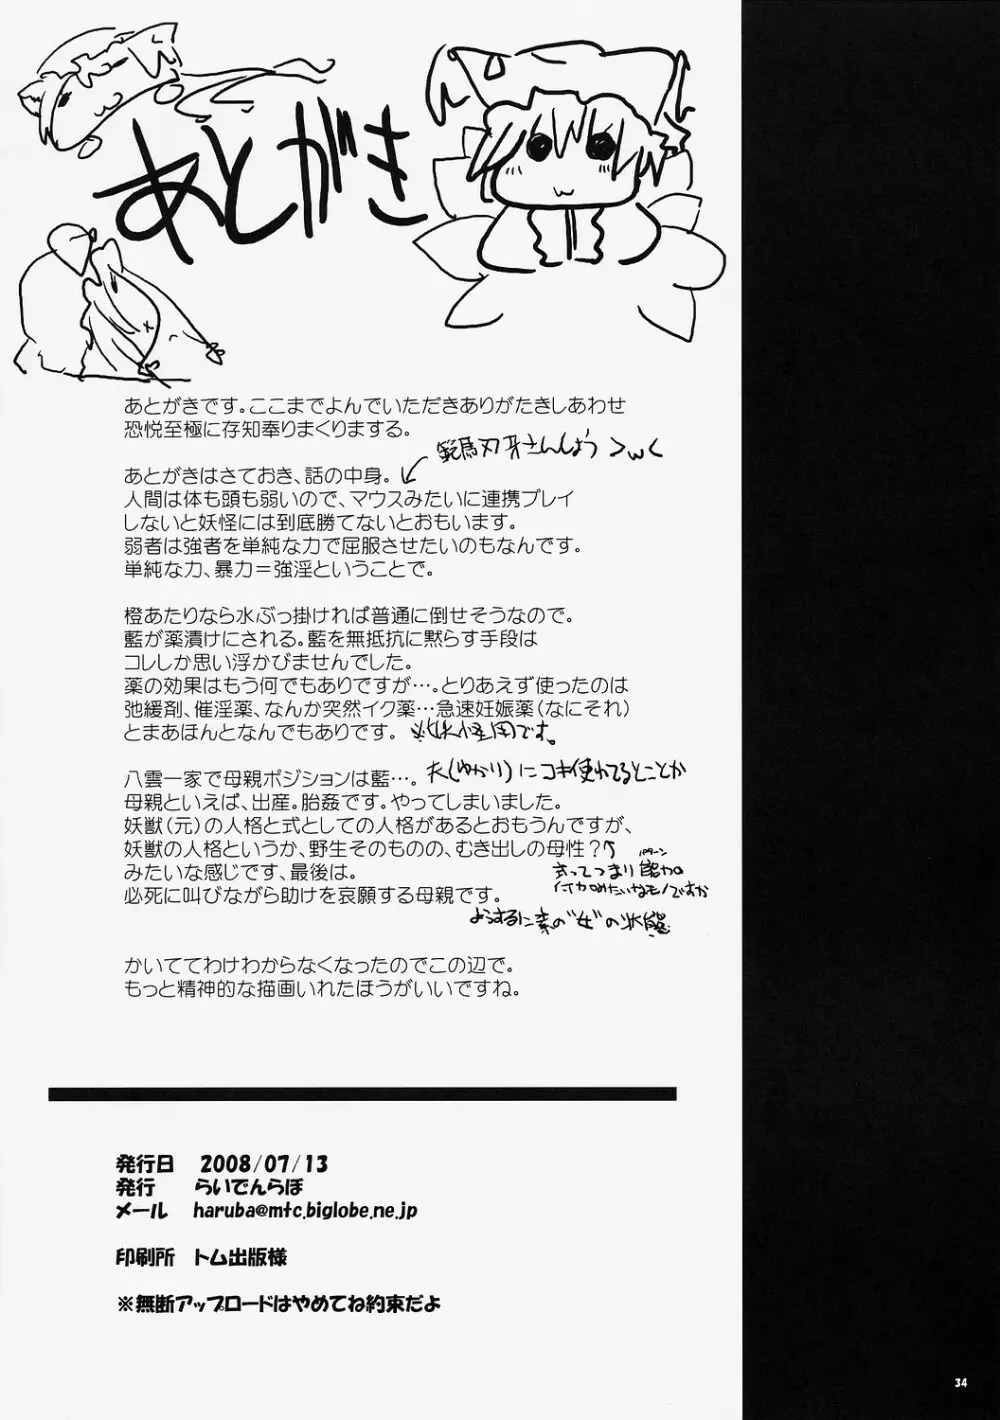 あとがき
あとがきです。ここまでよんでいただきありがたきしあわせ
恐悦至極に存知奉りまくりまする。
範馬刃牙さんしょう >w<
あとがきはさておき、話の中身。
人間は体も頭も弱いので、マウスみたいに連携プレイ
しないと妖怪には到底勝てないとおもいます。
弱者は強者を単純な力で屈服させたいのもなんです。
単純な力、暴力＝強淫ということで。
橙あたりなら水ぶっ掛ければ普通に倒せそうなので。
藍が薬漬けにされる。藍を無抵抗に黙らす手段は
コレしか思い浮かびませんでした。
薬の効果はもう何でもありですが…。とりあえず使ったのは
弛緩剤、催淫薬、なんか突然イク薬…急速妊娠薬（なにそれ）
とまあほんとなんでもありです。 ※妖怪用です。
八雲一家で母親ポジションは藍…。 夫(ゆかり)にコキ使われてるとことか
母親といえば、出産。胎姦です。やってしまいました。
妖獣（元）の人格と式としての人格があるとおもうんですが、
妖獣の人格というか、野生そのものの、むき出しの母性？
パターン
式ってつまり能力の
付加みたいなモノですか
みたいな感じです、最後は。
必死に叫びながら助けを哀願する母親です。
ようするに素の"女"の状態
かいててわけわからなくなったのでこの辺で。
もっと精神的な描画いれたほうがいいですね。
発行日 2008/07/13
発行 らいでんらぼ
メール haruba@mtc.biglobe.ne.jp
印刷所 トム出版様
※無断アップロードはやめてね約束だよ
34